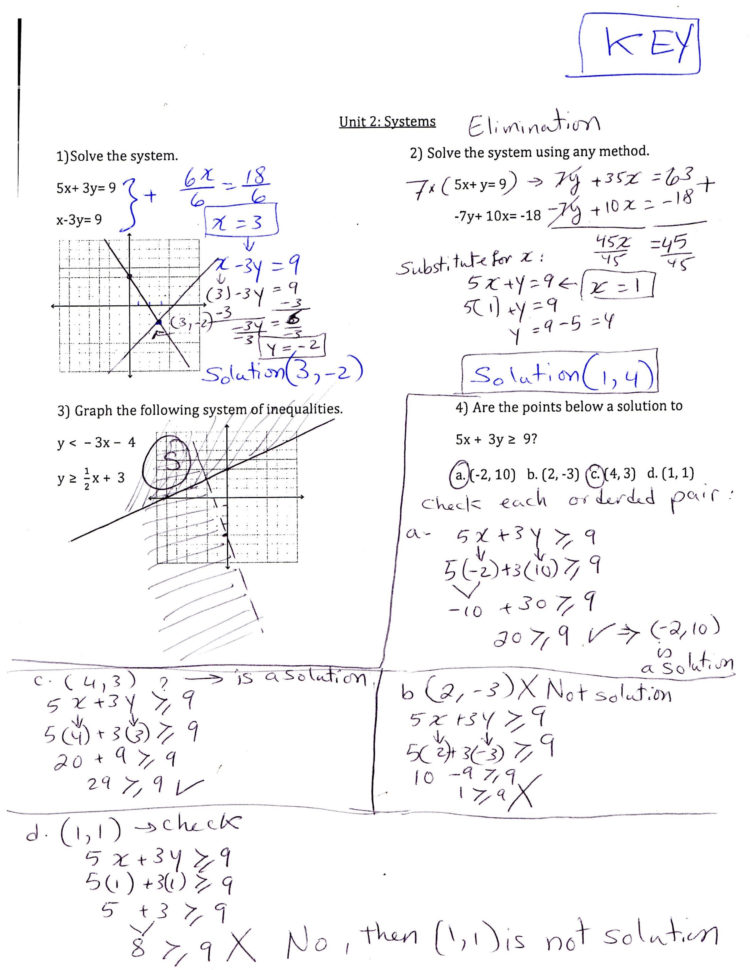 KEY
Unit 2: Systems
Elimination
1)Solve the system.
5x+ 3y= 9
x-3y= 9
} +
6x/6 = 18/6
x = 3
x -3y = 9
(3) -3y = 9
-3 -3
-3y/-3 = 6/-3
y = -2
(3,-2)
Solution(3,-2)
2) Solve the system using any method.
7×( 5x+ y= 9) → 7y +35x = 63
-7y+ 10x= -18 -7y +10x = -18 +
45x/45 = 45/45
Substitute for x:
5x+y=9 ← x = 1
5(1)+y=9
y = 9-5 = 4
Solution(1,4)
3) Graph the following system of inequalities.
y < – 3x – 4
y ≥ 1/2 x + 3
S
4) Are the points below a solution to
5x + 3y ≥ 9?
a. (-2, 10) b. (2, -3) c. (4, 3) d. (1, 1)
check each orderded pair:
a- 5x +3y ≥ 9
5(-2)+3(10) ≥ 9
-10 +30 ≥ 9
20 ≥ 9 ✓ ⇒ (-2,10)
is
a solution
c. (4,3) ? → is a solution.
5x +3y ≥ 9
5(4) +3(3) ≥ 9
20 + 9 ≥ 9
29 ≥ 9 ✓
b (2,-3) X Not solution
5x +3y ≥ 9
5(2)+3(-3) ≥ 9
10 -9 ≥ 9
1 ≥ 9 X
d. (1,1) → check
5x +3y ≥ 9
5(1) +3(1) ≥ 9
5 +3 ≥ 9
8 ≥ 9 X No, then (1,1) is not solution